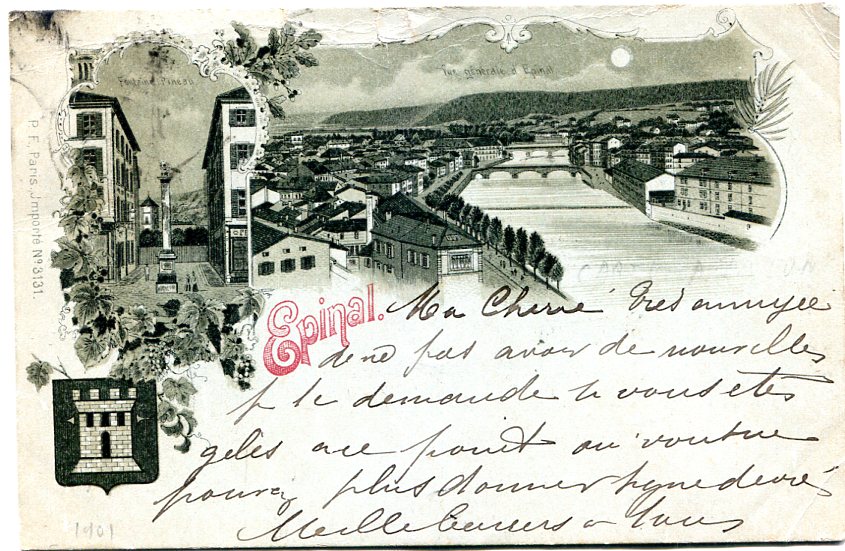 Fontaine Pineau.
Vue générale d'Epinal
P. F. Paris. Importé Nº 3131.
Epinal.
Ma Cheré très annuyée
de ne pas avoir de nouvelles
je te demande si vous etes
gelés au point où vous ne
pouvez plus donner signe de vie
Meilleurs a tous
1901